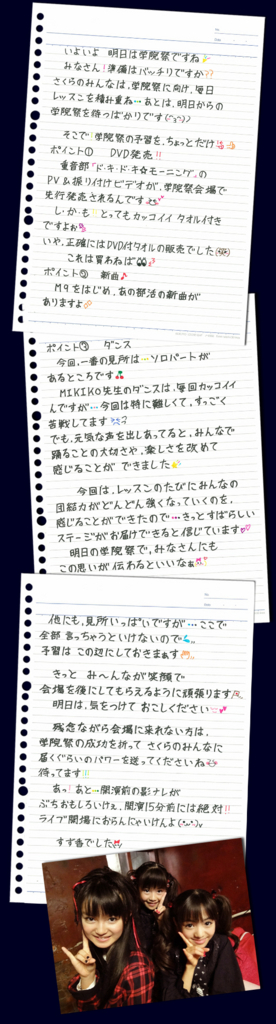 いよいよ 明日は学院祭ですね
みなさん!準備はバッチリですか??
さくらのみんなは、学院祭に向け、毎日
レッスンを積み重ね…あとは、明日からの
学院祭を待つばかりです
そこで!学院祭の予習を、ちょっとだけ
ポイント① DVD発売!!
重音部「ド・キ・ド・キ☆モーニング」の
PV&振り付けビデオが、学院祭会場で
先行発売されるんです
し・か・も!とってもカッコイイ タオル付き
ですよぉ
いや、正確にはDVD付タオルの販売でした
これは買わねば
ポイント② 新曲♪
M9をはじめ、あの部活の新曲が
ありますよ
ポイント③ ダンス
今回、一番の見所は…ソロパートが
あるところです
MIKIKO先生のダンスは、毎回カッコイイ
んですが…今回は特に難しくて、すっごく
苦戦してます
でも、元気な声を出しあってると、みんなで
踊ることの大切さや、楽しさを改めて
感じることが できました
今回は、レッスンのたびにみんなの
団結力がどんどん強くなっていくのを、
感じることができたので…きっとすばらしい
ステージがお届けできると信じています
明日の学院祭で、みなさんにも
この思いが 伝わるといいなぁ
他にも、見所いっぱいですが…ここで
全部 言っちゃうといけないので
予習は この辺にしておきまぁす
きっと み〜んなが笑顔で
会場を後にしてもらえるように頑張ります
明日は、気をつけて おこしください
残念ながら会場に来れない方は、
学院祭の成功を祈って さくらのみんなに
届くぐらいのパワーを送ってくださいね
待ってます!!
あっ!あと…開演前の影ナレが
ぶちおもしろいけぇ、開演15分前には絶対!!
ライブ会場におらんにゃいけんよ
すず香でした